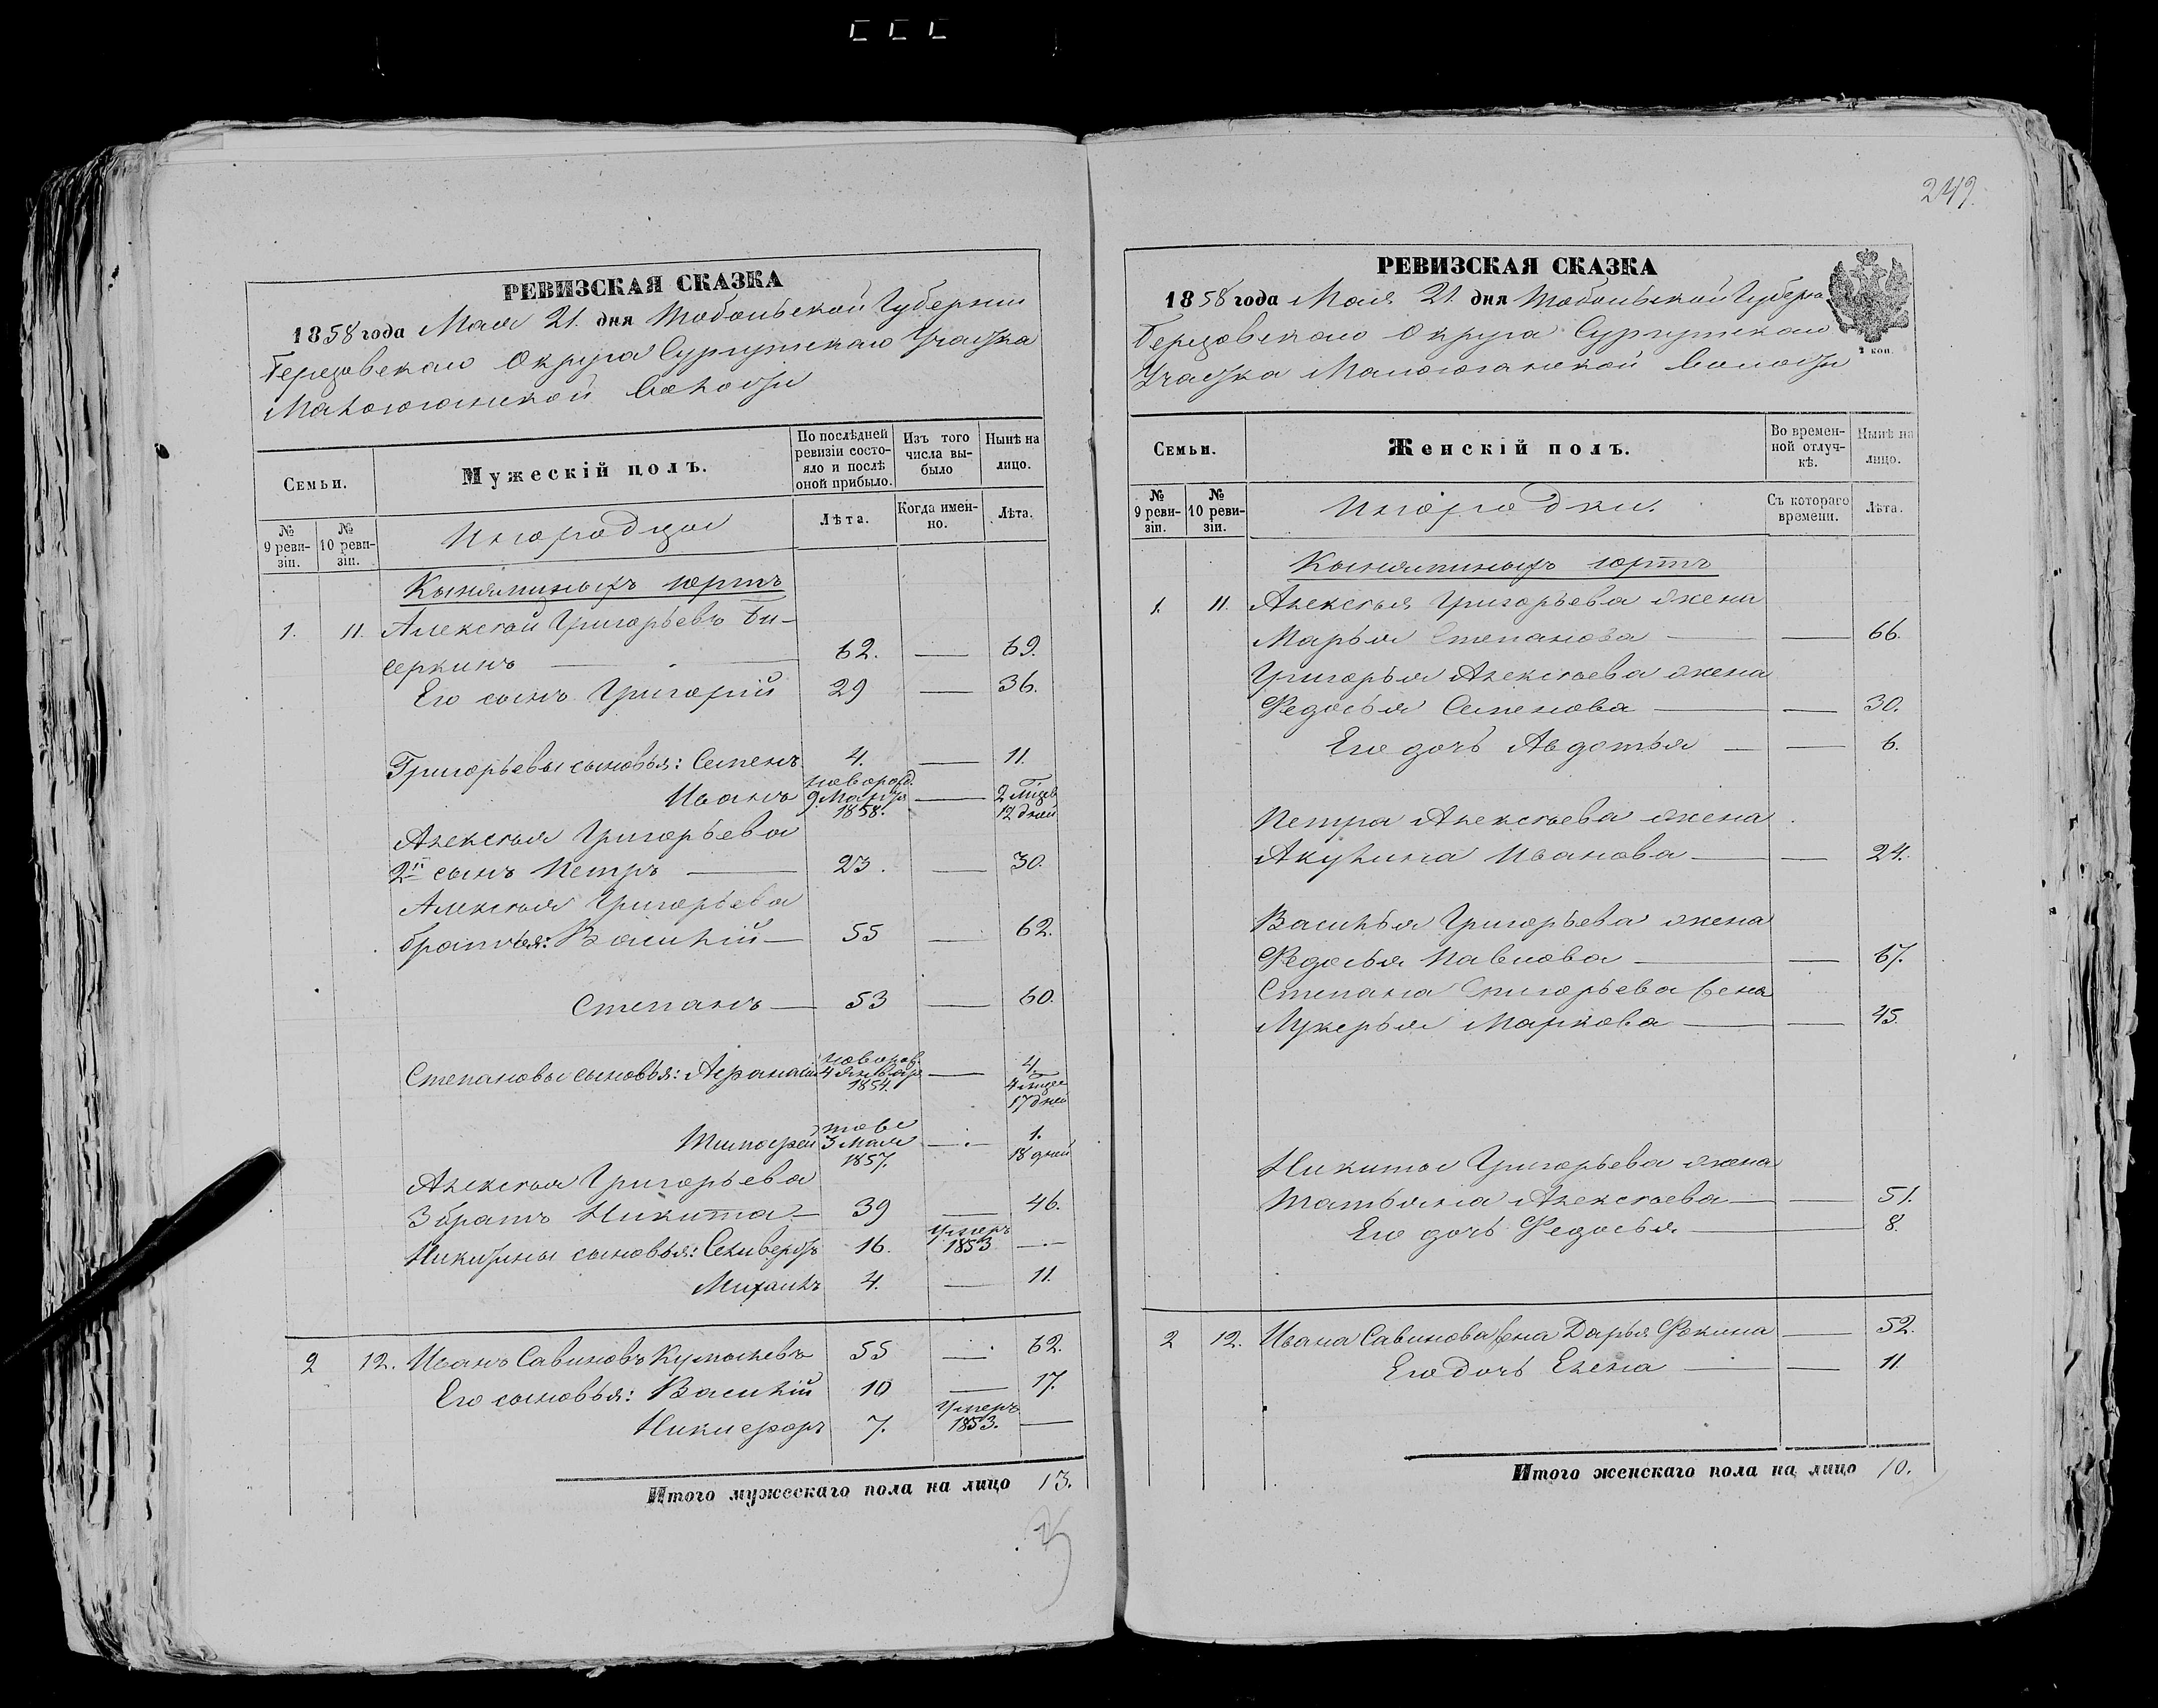 249.
РЕВИЗСКАЯ СКАЗКА
1858 года Мая 21. дня Тобольской Губернии
Березовскаго Округа Сургутскаго Участка
Малоюганской Волости
Семьи.
Мужескій полъ.
По послѣдней ревизіи состояло и послѣ оной прибыло.
Изъ того числа выбыло
Нынѣ на лицо.
№ 9 ревизіи.
№ 10 ревизіи.
Инородцы
Лѣта.
Когда именно.
Лѣта.
Кыняминыхъ юртъ
1. 11. Алексѣй Григорьевъ Би-
серкинъ — 62. — 69.
Его сынъ Григорій 29 — 36.
Григорьевы сыновья: Семенъ 4. — 11.
Иванъ новорожд. 9 Марта 1858. — 2 мѣсяц 12 дней
Алексѣя Григорьева
2й сынъ Петръ — 23. — 30.
Алексѣя Григорьева
братья: Василій — 55 — 62.
Степанъ — 53 — 60.
Степановы сыновья: Афанасій 4 Январ 1854. — 4 17 дней
Тимофей 3 Мая 1857. — 1. 18 дней
Алексѣя Григорьева
3 братъ Никита — 39 — 46.
Никитины сыновья: Селиверстъ 16. Умеръ 1853 —
Михаилъ 4. — 11.
2 12. Иванъ Савиновъ 55 — 62.
Его сыновья: Василій 10 — 17.
Никифоръ 7. Умеръ 1853. —
Итого мужескаго пола на лицо 13.
РЕВИЗСКАЯ СКАЗКА
1858 года Мая 21. дня Тобольской Губерн
Березовскаго Округа Сургутскаго
Участка Малоюганской Волости
2 коп.
Семьи.
Женскій полъ.
Во временной отлучкѣ.
Нынѣ на лицо.
№ 9 ревизіи.
№ 10 ревизіи.
Инородки.
Съ котораго времени.
Лѣта.
Кыняминыхъ юртъ
1. 11. Алексѣя Григорьева жена
Марья Степанова — — 66.
Григорья Алексѣева жена
Федосья Семенова — — 30.
Его дочь Авдотья — — 6.
Петра Алексѣева жена
Акулина Иванова — — 24.
Василья Григорьева жена
Федосья Павлова — — 67.
Степана Григорьева жена
Лукерья Маркова — — 45.
Никиты Григорьева жена
Татьяна Алексѣева — — 51.
Его дочь Федосья — 8.
2 12. Ивана Савинова жена Дарья Фокина — 52.
Его дочь Елена — — 11.
Итого женскаго пола на лицо 10.